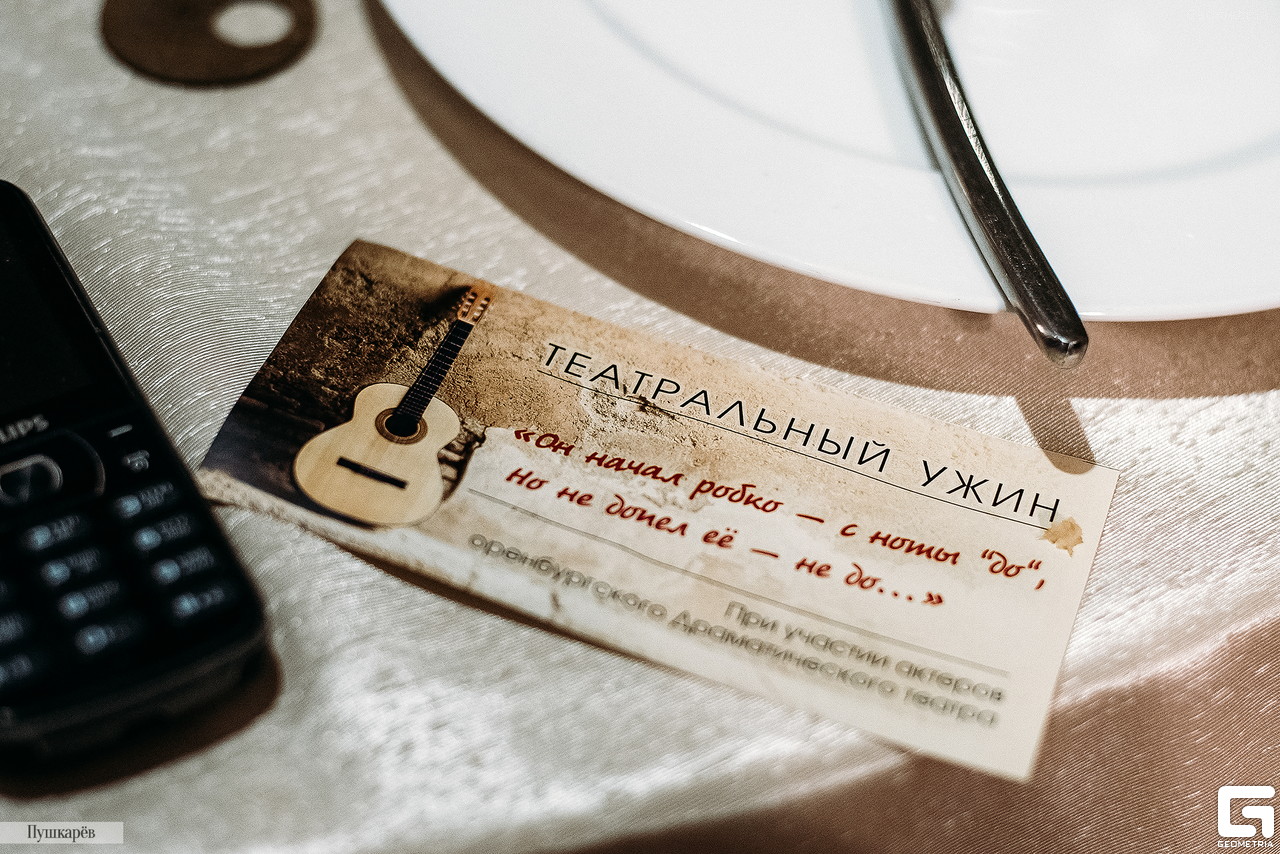 ТЕАТРАЛЬНЫЙ УЖИН
«Он начал робко — с ноты "до",
но не допел её — не до...»
При участии актеров
оренбургского Драматического театра
Пушкарёв
GEOMETRIA